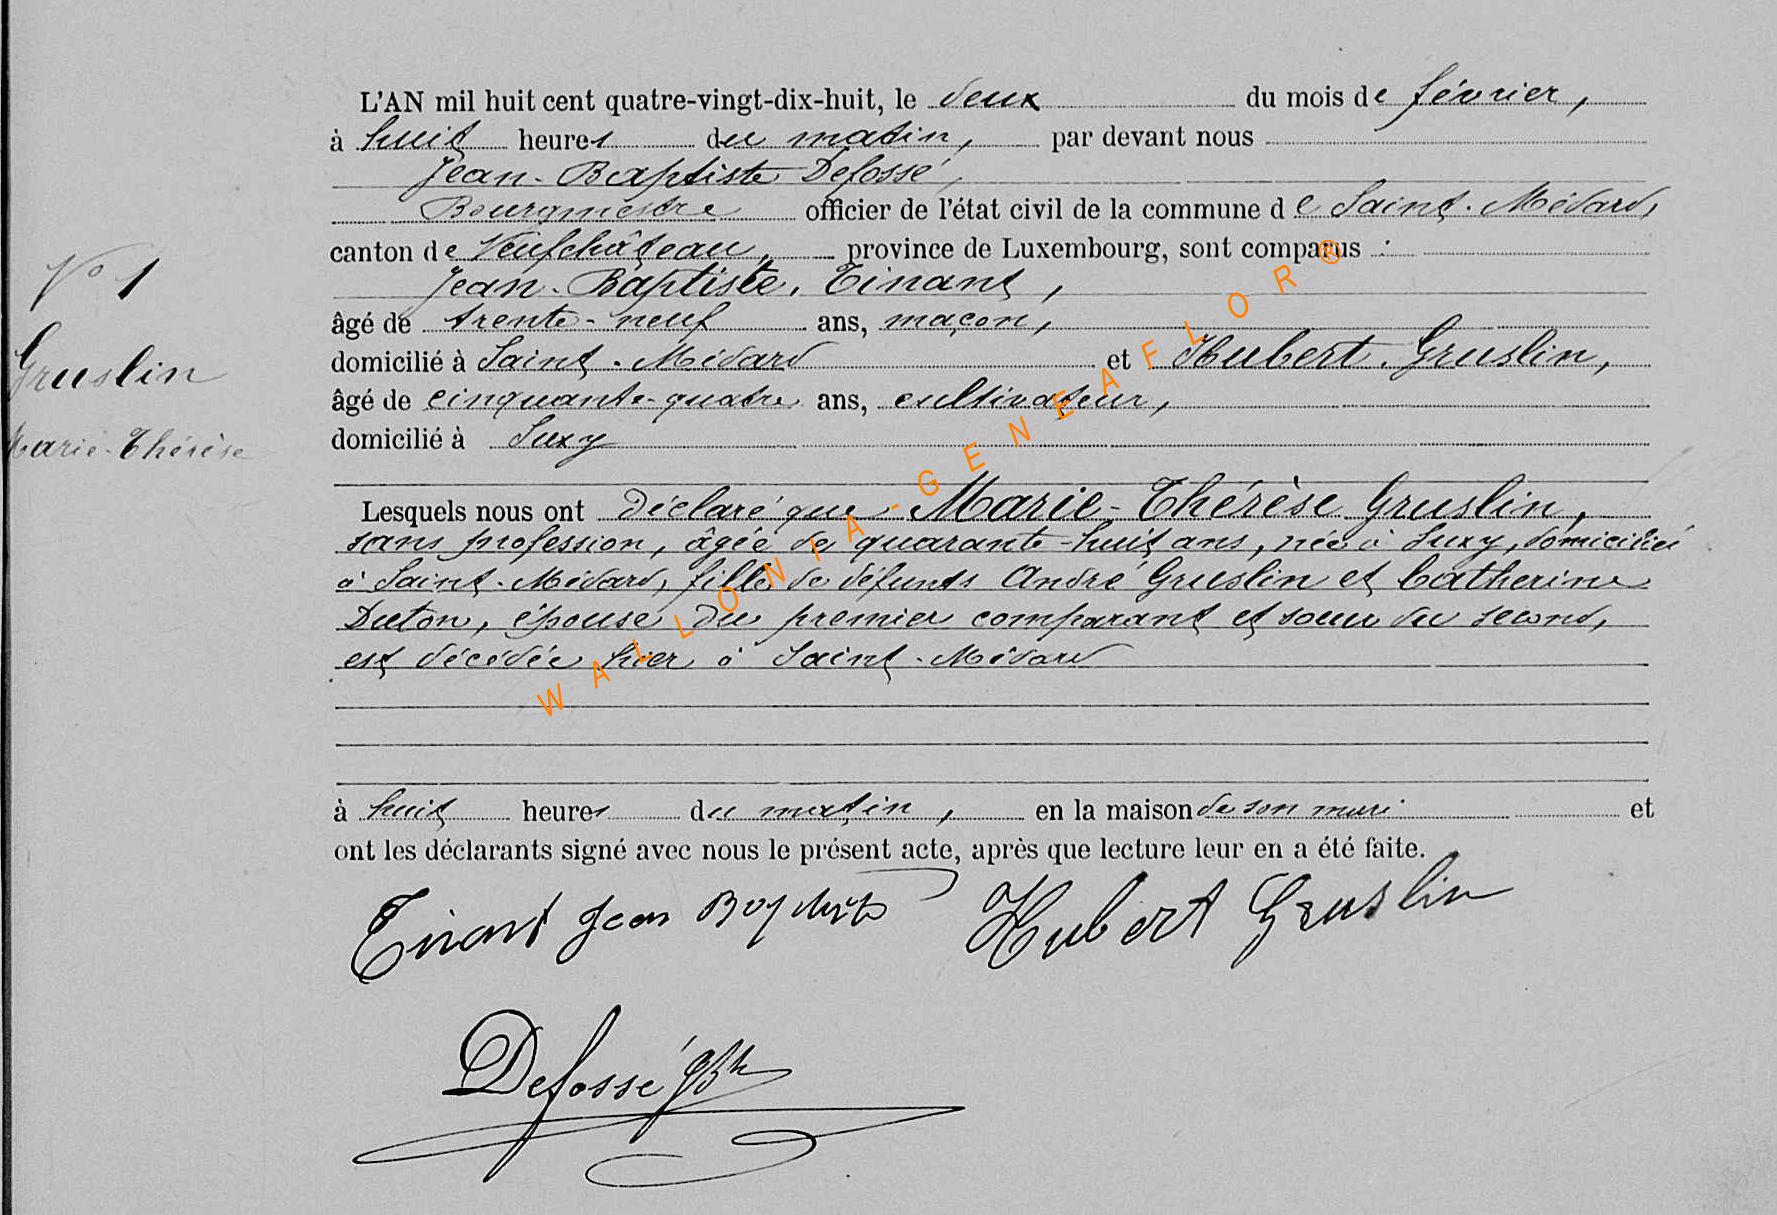 L'AN mil huit cent quatre-vingt-dix-huit, le deux du mois de février,
à huit heures du matin, par devant nous
Jean-Baptiste Defossé,
Bourgmestre officier de l'état civil de la commune de Saint-Médard,
canton de Neufchâteau, province de Luxembourg, sont comparus :
Jean-Baptiste Tinant,
âgé de trente-neuf ans, maçon,
domicilié à Saint-Médard et Hubert Gruslin,
âgé de cinquante-quatre ans, cultivateur,
domicilié à Suxy
N° 1
Gruslin
Marie-Thérèse
Lesquels nous ont déclaré que Marie-Thérèse Gruslin,
sans profession, âgée de quarante-huit ans, née à Suxy, domiciliée
à Saint-Médard, fille de défunts André Gruslin et Catherine
Duton, épouse du premier comparant et soeur du second,
est décédée hier à Saint-Médard
à huit heures du matin, en la maison de son mari et
ont les déclarants signé avec nous le présent acte, après que lecture leur en a été faite.
Tinant Jean Baptiste Hubert Gruslin
Defossé JBte
WALLONIA-GENEAFLOR®